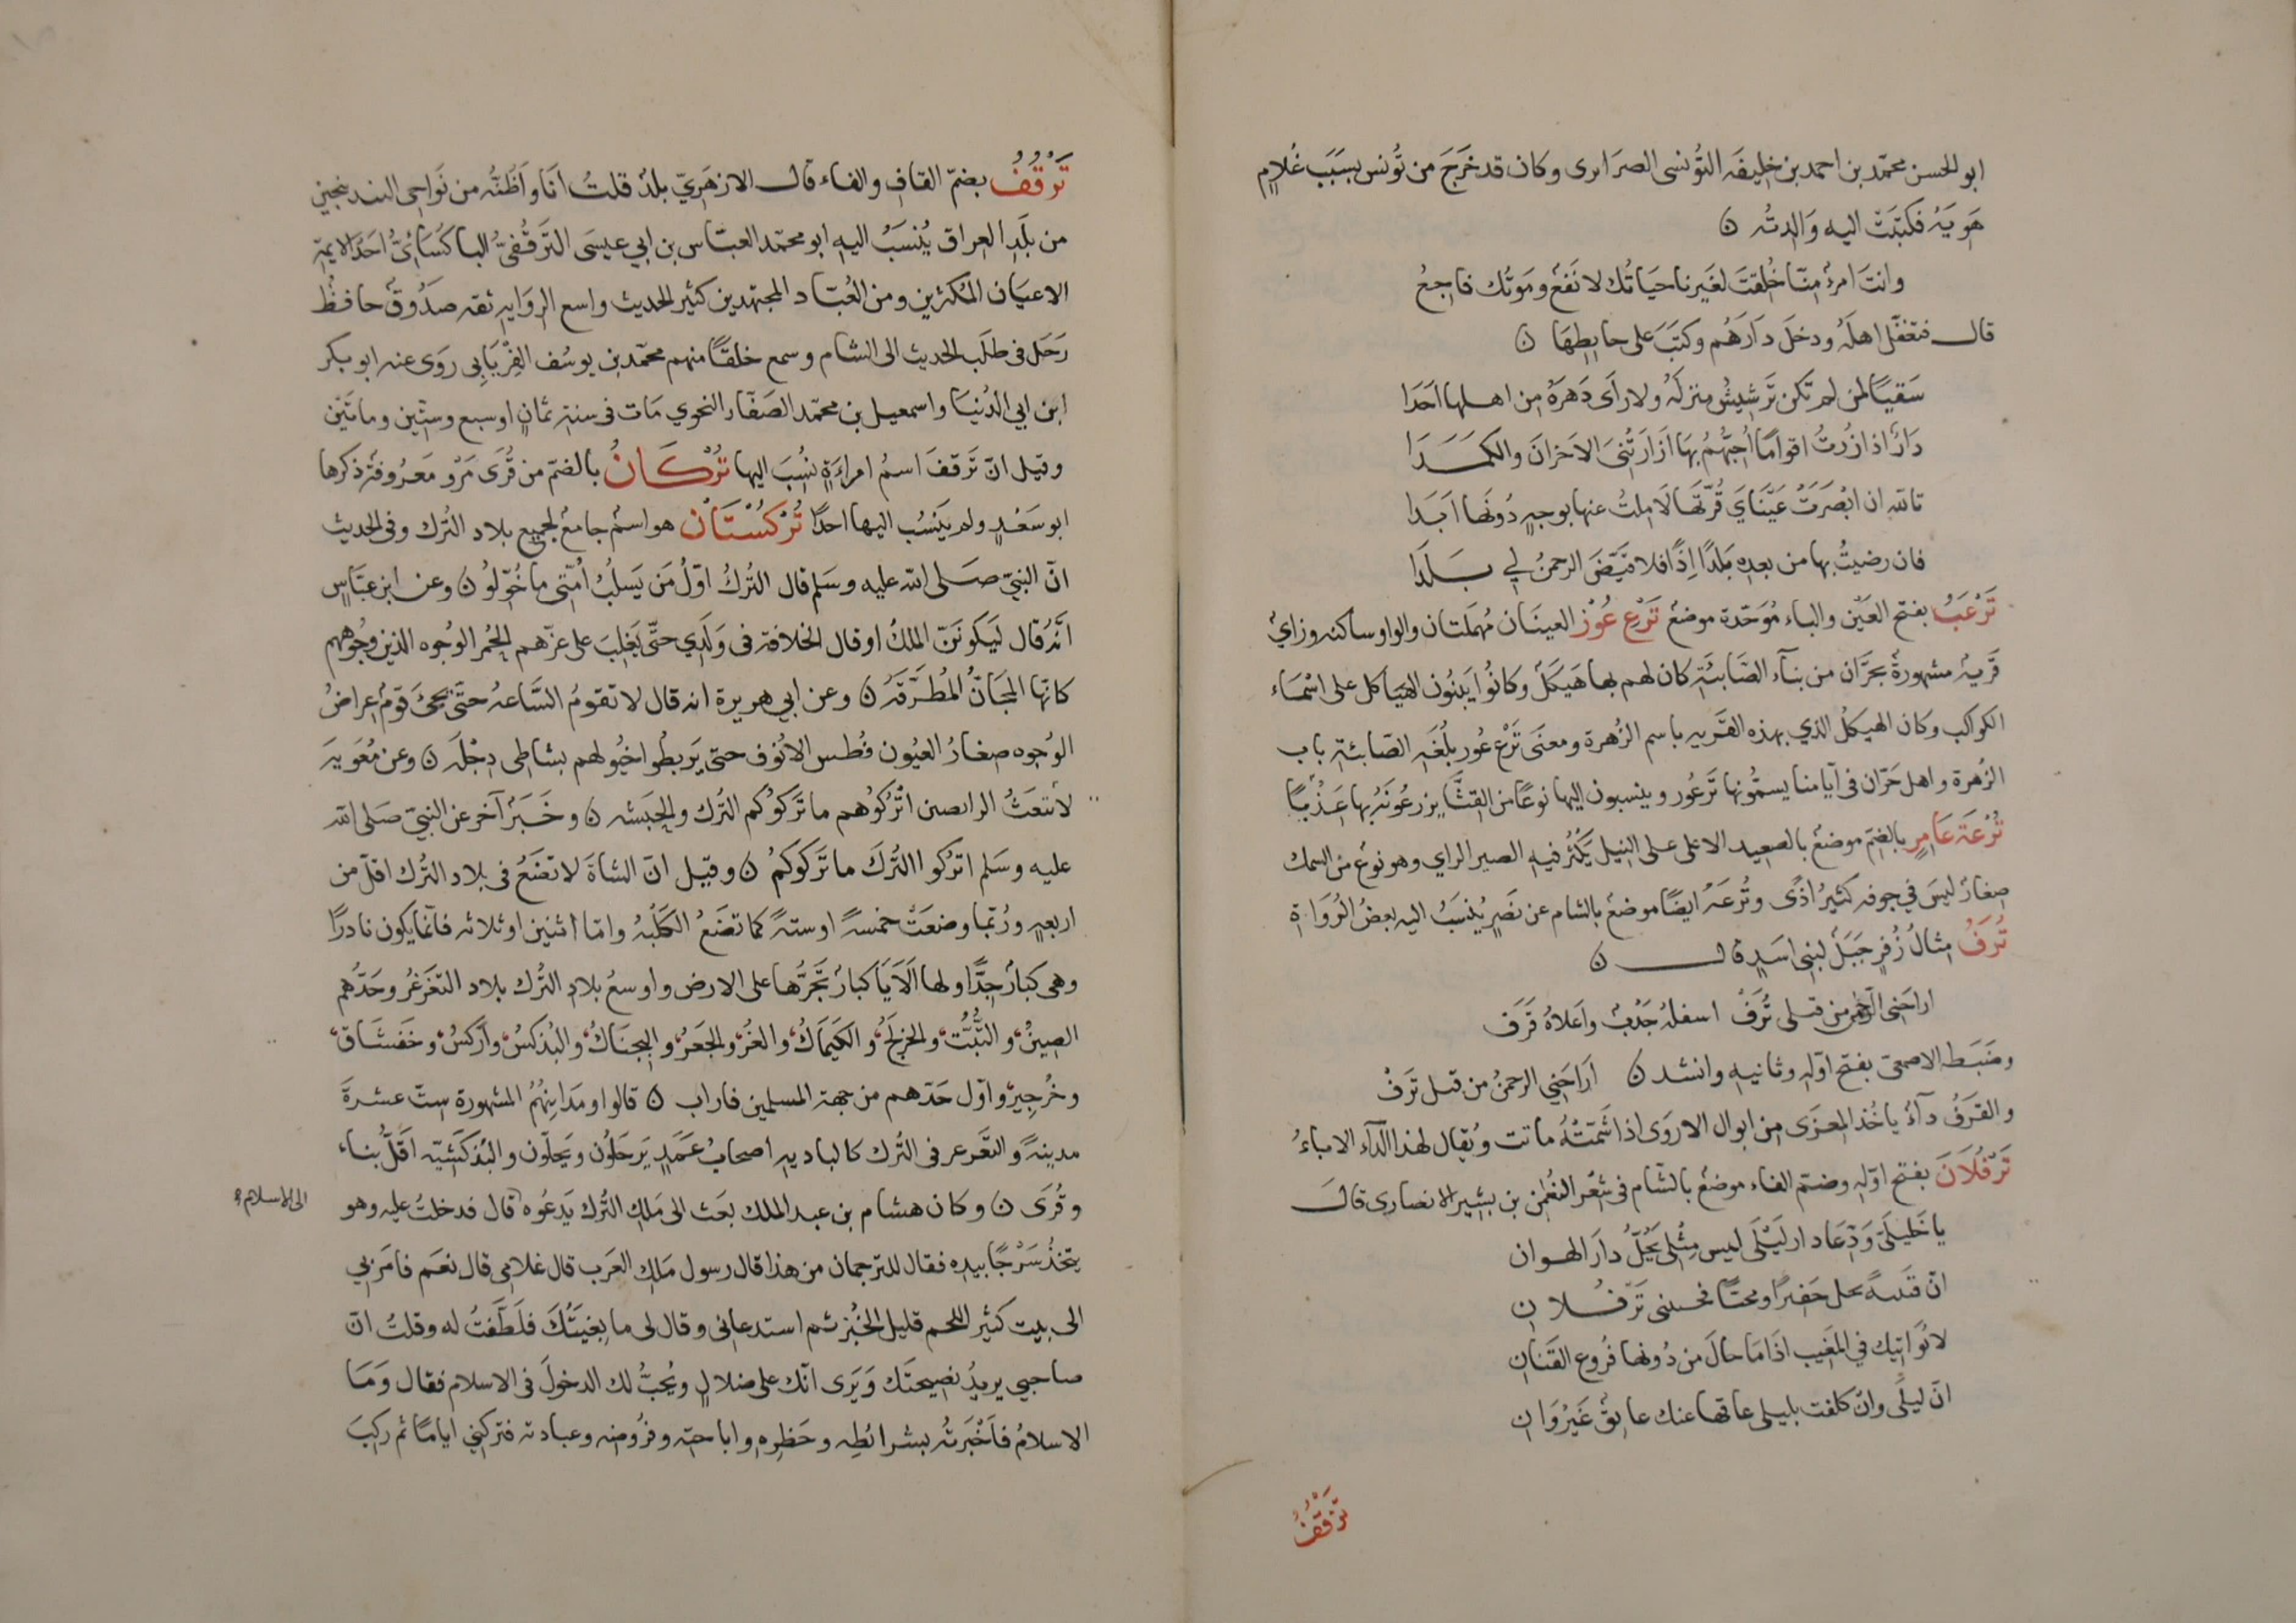 ابو الحسن محمّد بن احمد بن خليفه التُونسى الصرايرى وكان قد خَرَجَ من تُونس بسَبَب غُلامٍ
هَوِيَهُ فكتبَت اليه وَالدته ن
وانتَ امرءٌ مِنّا خُلِقتَ لغَيرنا حيَاتُك لا نَفعٌ ومَوتُك فاجعُ
قال فتغفّل اهلَهُ ودخلَ دَارَهُم وكتَبَ على حايِطِهَا ن
سَقيًا لمن لم تكن تَرشِيشُ منزلَهُ ولا رَاى دَهرَهُ مِن اهلها احَدَا
دَارٌ اذا زُرتُ اقوامًا اُحِبّهُمُ بهَا ازَارَتْنِىَ الاحزانَ والكمَدَا
تالله ان ابْصَرَتْ عَيْنَايَ قُرّتهَا لا مِلتُ عنها بوجهٍ دُونهَا اَبَدا
فان رضيتُ بها من بعدِه بَلدًا اِذًا فلا قَيّضَ الرحمنُ لي بَلدَا
تَرْعَبُ بفتح العَيْن والباء مُوَحّدة موضعٌ تَرْع عُوْز العينَان مُهمَلتان والواو ساكنه وزايٌ
قَريهٌ مشهورةٌ بحَرّان من بنآء الصَابئَةِ كان لهم بها هَيكَلٌ وكانُوا يَبنُون الهيَاكل على اسْمَاء
الكواكب وكان الهيكلُ الذي بهذه القَريه باسم الزُهرة ومعنَى تَرْع عُور بلُغَهِ الصَابئةِ باب
الزُهرة واهل حَرّان فى ايّامنا يسمّونها تَرعُور وينسبون اليها نوعًا من القثّآ يزرعُونَهُ بها عَذْبًا
تُرْعَة عَامِرٍ بالضمّ موضعٌ بالصعيد الاعلى على النيل يَكثُر فيهِ الصير الراي وهو نوعٌ من السمك
صِغارٌ ليسَ في جوفه كثيرُ اذًى وتُرعَهُ ايضًا موضعٌ بالشام عن نصرٍ يُنسَبُ اليه بعضُ الرُوَاة
تُرَفُ مِثالُ زُفَرٍ جَبَلٌ لبنى اسَدٍ قال ن
اراحَنى الرحمن من قبلى تُرَفْ اسفلُهُ جَدْبٌ واَعلاهُ قَرَف
وضَبَطه الاصمعىّ بفتح اوّله وثانيهِ وانشد ن اَرَاحَنِي الرحمنُ من قبل تَرَفْ
والقرَفُ دآءٌ ياخُذ المِعزَى مِن ابوال الاروَى اذا شَمّتْهُ ماتت ويُقال لهذا الدّآء الاباءُ
تَرْفُلَانَ بفتح اوّلهِ وضمّ الفاء موضعٌ بالشام فى شعْر النعْمٰن بن بشير الانصارى قالَ
يا خَليلَىّ وَدّعَا دار لَيْلَى ليس مِثْلى يَحُلُّ دارَ الهوان
انّ قَينيهً تحل حَفيرًا ومحبّا فحسنى تَرْفُلان
لا تُوَاتيك في المَغيب اذَا مَا حالَ من دُونها فُروعِ القَنان
انّ ليلَى وانْ كلفت بليلى عاقهَا عنك عايِقٌ غَيرُ وَان
تَرْقُفُ
تَرْقُفُ بضمّ القاف والفاء قال الازهَرِيّ بلدٌ قلتُ اَنَا واَظُنّه من نَواحى البندنيجين
من بلَدِ العراق يُنسَبُ اليهِ ابو محمّد العبّاس بن ابي عيسَى التَرقُفىّ الباكُسَائىّ احَدُ الايمّه
الاعيَان المُكثرين ومن العُبّاد المجتهدين كثير الحديث واسع الروَايه ثقه صَدُوقٌ حافظٌ
رَحَل فى طلَب الحديث الى الشام وسمع خلقًا منهم محمّد بن يوسُف الفِرْيَابى روَى عنه ابو بكر
ابن ابي الدُنيَا واسمعيل بن محمّد الصَفّار النحوي مَات فى سنة ثمانٍ او سبع وستّين ومائتَين
وقيل انّ تَرقفَ اسمُ امراءَةٍ نُسُبَ اليها تُرْكَانُ بالضمّ من قُرَى مَرْو مَعرُوفة ذكرها
ابو سَعْدٍ ولم يَنسُب اليها احدًا تُرْكُسْتَانُ هو اسمٌ جامعٌ لجميع بلاد التُرك وفى الحديث
انّ النبىّ صَلى الله عليه وسَلم قال التُركُ اوّلُ مَن يَسلُبُ اُمّتى ما خُوّلُوا ن وعن ابن عبّاسٍ
انّهُ قال لَيَكونَنّ الملكُ او قال الخلافة فى وَلَدِي حتّى يَغلِبَ على عزّهم الحُمر الوُجوه الذين وجُوههم
كانّها المَجَانّ المُطَرّقَة ن وعن ابي هريرة انه قال لا تقومُ السَّاعهُ حتّى يجىَ قومٌ عِراضُ
الوُجوه صِغارُ العيُون فُطس الانوُف حتى يَربطُوا خيُولهم بشاطى دِجْلَة ن وعن مُعَويةَ
لا تبْعَثُ الرابضين اتْرُكُوهم ما تَرَكوُكم التُرك والحبَشه ن وخَبَرٌ آخر عن النبىّ صَلى الله
عليه وسَلم اترُكوا التُركَ ما تَرَكوكمُ ن وقيل انّ الشاةَ لا تَضَعُ فى بلاد التُرك اقلّ من
اربعهٍ ورُبّما وضعَتْ خمسهً او ستهً كما تضَعُ الكلبُهُ وامّا اثنين او ثلاثه فانّما يكون نادرًا
وهى كبارٌ جدًّا ولها اَلَايَا كبارٌ تَجُرُّها على الارض واوسعُ بلادِ التُرك بلاد التغَزغُر وحَدّهُم
الصِينُ والتُبّت والخرلخُ والكَيمَاكُ والغُزّ والجَفرُ والبجنَاكُ والبُذكسُ واَزكسُ وخَفشَاق
وخُرجِيز واوّل حَدّهم من جهة المسلمين فاراب ن قالوا ومَدَاينهُمُ المشهورة ستّ عشرةَ
مدينهً والتغَرعر فى التُرك كالباديهِ اصحابُ عَمَدٍ يَرحَلُون ويَحلّون والبُذكشيّه اَقلُّ بناء
وقُرَى ن وكان هشام بن عبد الملك بَعَث الى مَلِك التُرك يَدعُوه قال فدخلتُ عليه وهو
الى الاسلام
يتّخذُ سَرْجًا بيدِه فقال للترجمان من هذا قال رسول مَلِك العَرب قال غلامى قال نعَم فامَر بي
الى بيت كثير اللحم قليل الخُبز ثم استدعانى وقال لى ما بِغيتُكَ فتَلَطّفْتُ له وقلتُ انّ
صاحبي يريدُ نصيحَتَك وَيَرى انّك على ضلالٍ ويُحبُّ لك الدخولَ فى الاسلام فقال وَمَا
الاسلامُ فاَخْبَرتُه بشرائطِه وحَظرِه واباحته وفرُوضِه وعبادته فتركنِي ايامًا ثم ركبَ